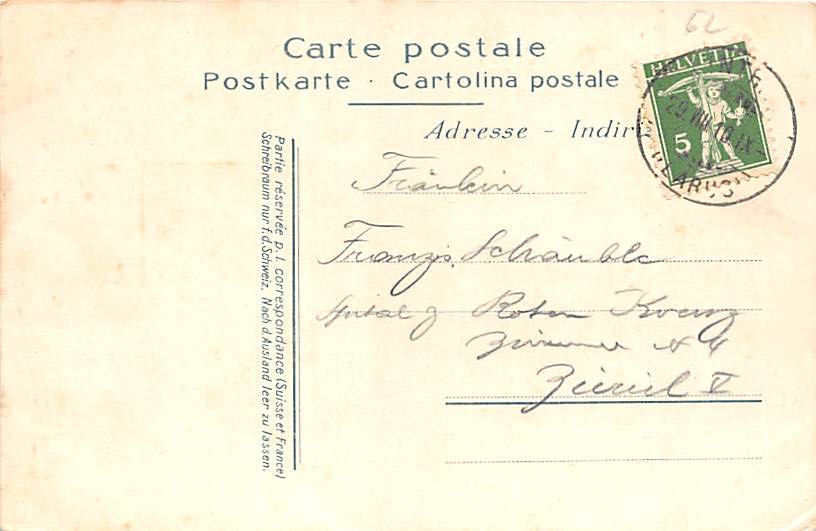 62
Carte postale
Postkarte · Cartolina postale
Adresse - Indiri
HELVETIA
5
29.VIII.10.IX
GLARUS
Partie réservée p. l. correspondance (Suisse et France)
Schreibraum nur f. d. Schweiz. Nach d. Ausland leer zu lassen.
Fräulein
Franzis. Schäuble
Spital z Roten Kreuz
Zimmer
Zürich V